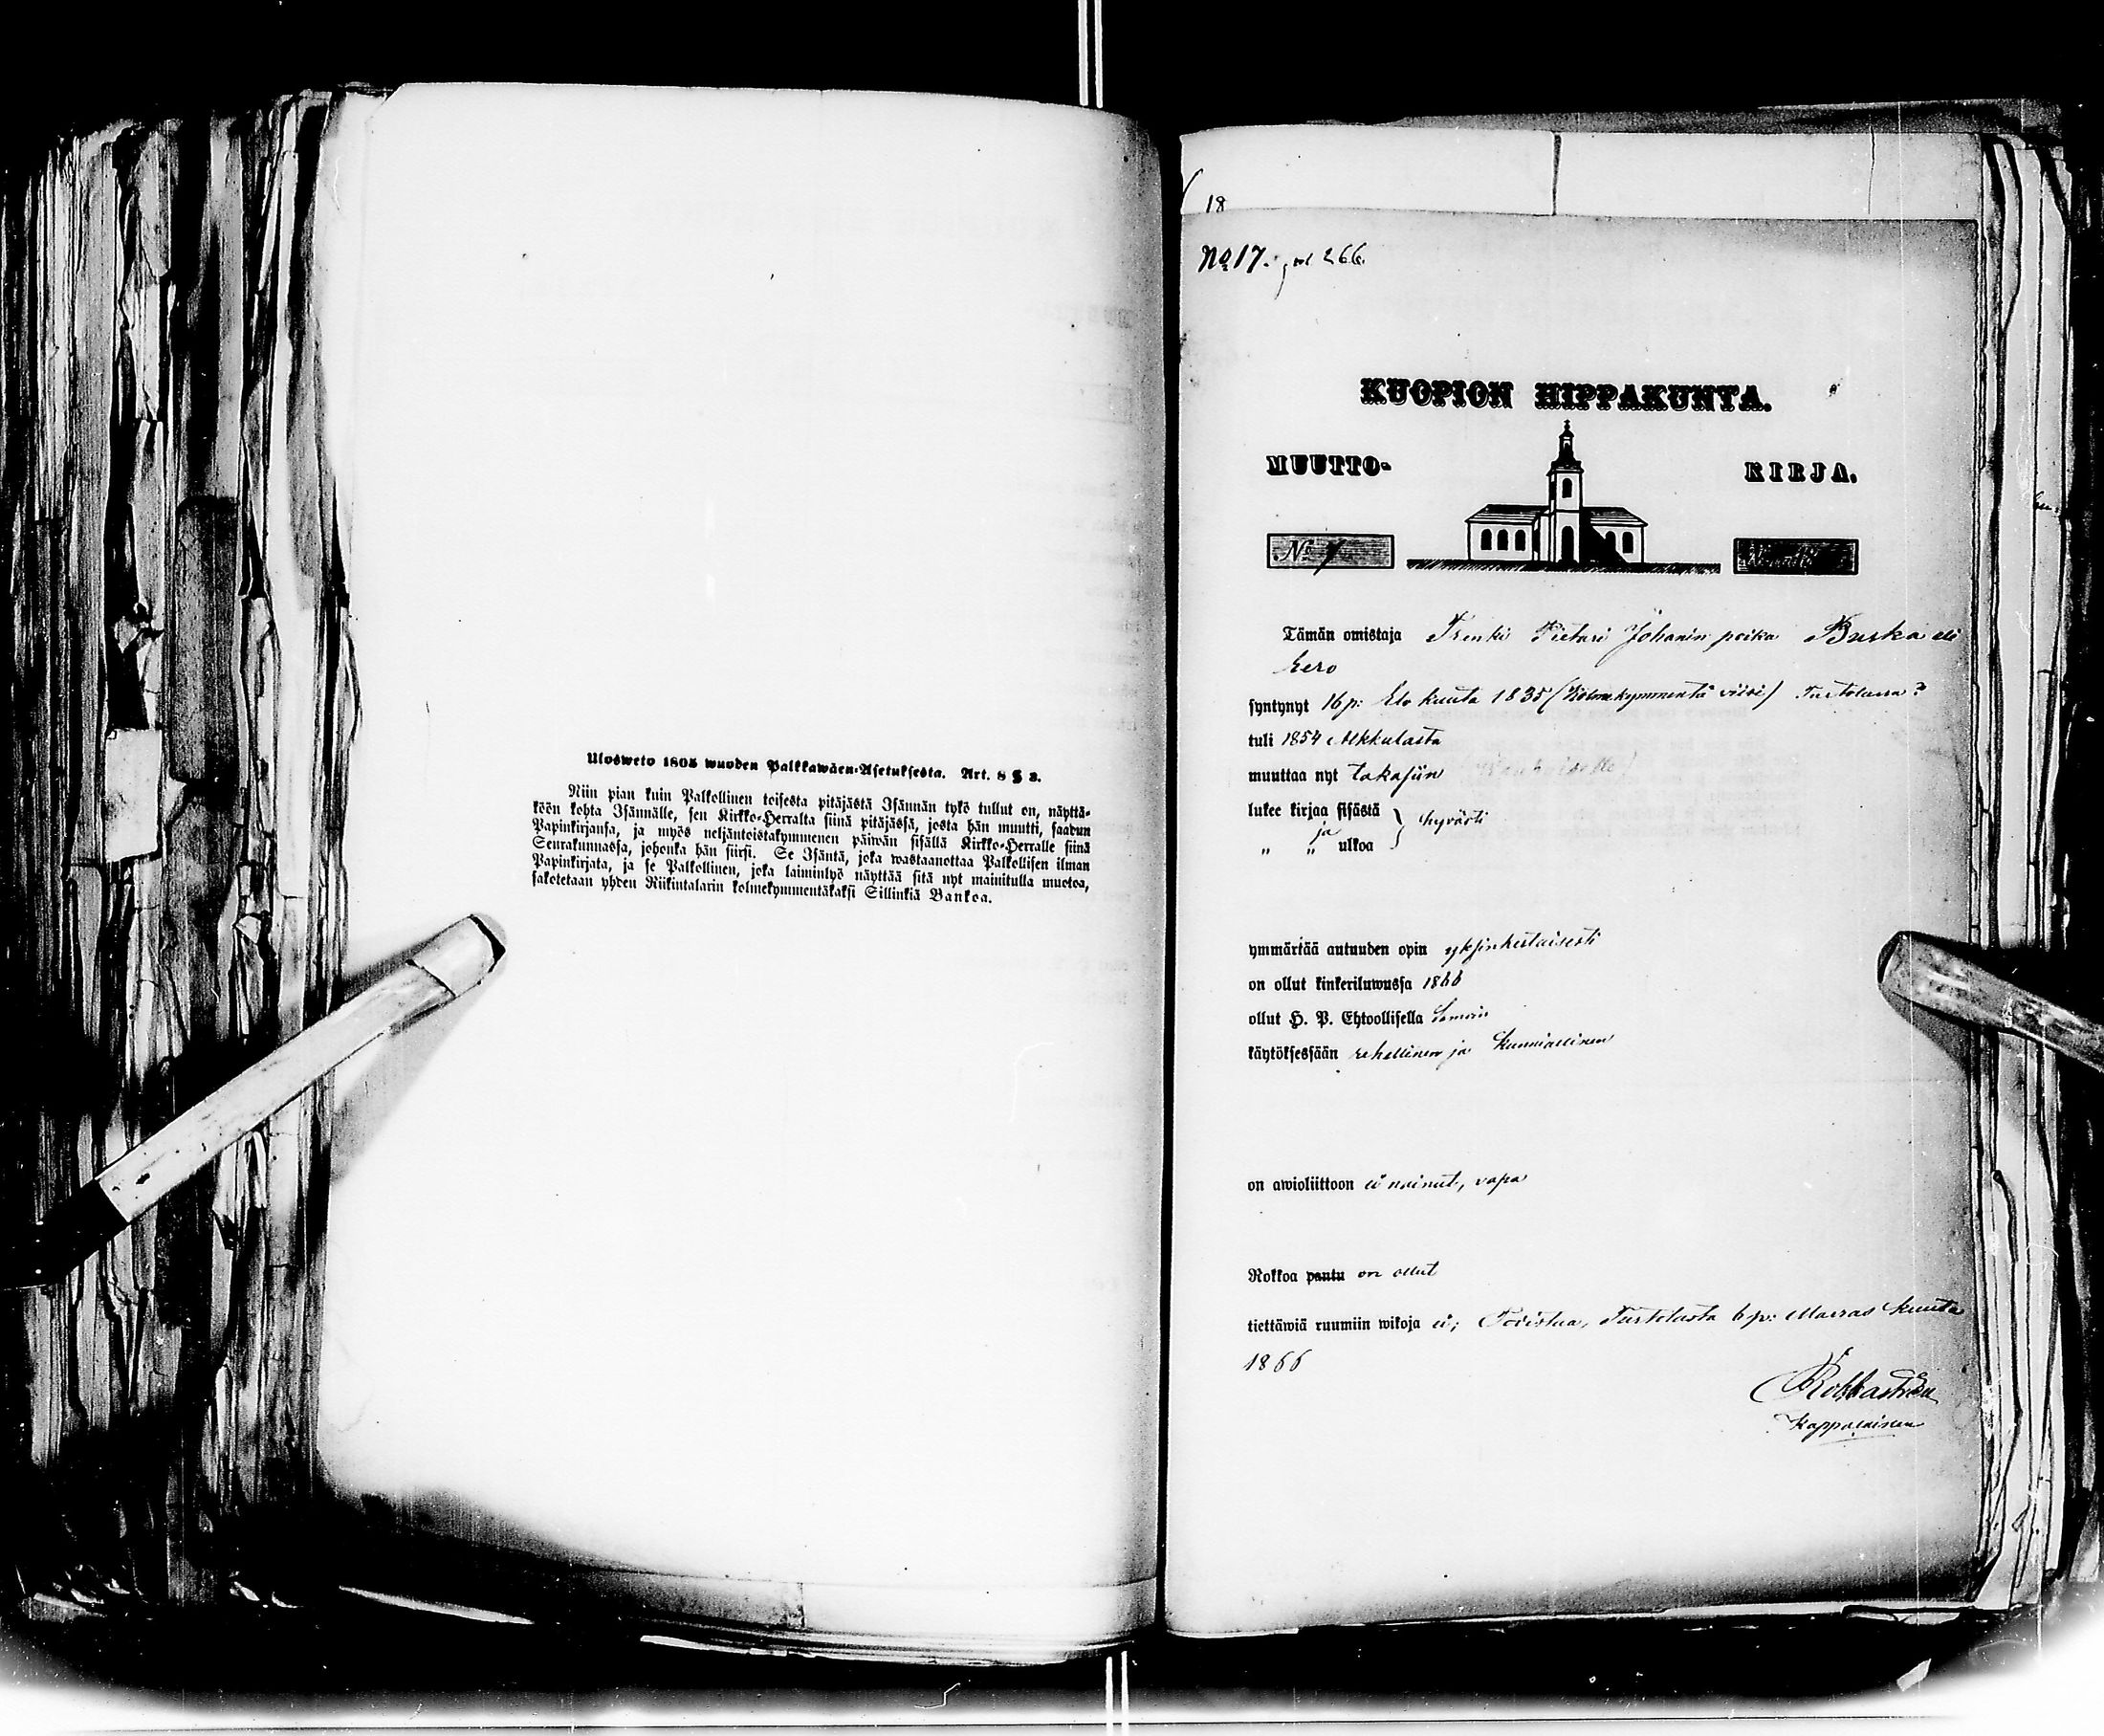 Ulosweto 1805 wuoden Palkkawäen-Asetuksesta. Art. 8 § 3.
Niin pian kuin Palkollinen toisesta pitäjästä Isännän tykö tullut on, näyttä-
köön kohta Isännälle, sen Kirkko-Herralta siinä pitäjässä, josta hän muutti, saadun
Papinkirjansa, ja myös neljäntoistakymmenen päiwän sisällä Kirkko-Herralle siinä
Seurakunnassa, johonka hän siirsi. Se Isäntä, joka wastaanottaa Palkollisen ilman
Papinkirjata, ja se Palkollinen, joka laiminlyö näyttää sitä nyt mainitulla muotoa,
sakotetaan yhden Riikintalarin kolmekymmentäkaksi Sillinkiä Bankoa.
18
No 17. 266.
KUOPION HIPPAKUNTA.
MUUTTO- KIRJA.
No 7
Tämän omistaja Trenki Pietari Johanin poika Buska eli
Kero
syntynyt 16 p: Elo kuuta 1835 (Kolmekymmentä viisi) Turtolassa?
tuli 1854 Alkkulasta
muuttaa nyt takasiin
lukee kirjaa sisästä } hyvästi
ja
„ „ ulkoa
ymmärtää autuuden opin yksinkertaisesti
on ollut kinkeriluwussa 1866
ollut H. P. Ehtoollisella Samoin
käytöksessään rehellinen ja kunniallinen
on awioliittoon ei nainut, vapa
Rokkoa pantu on ollut
tiettäwiä ruumiin wikoja ei; Todistaa, Turtolasta 6 p: Marras kuuta
1866
Kappalainen